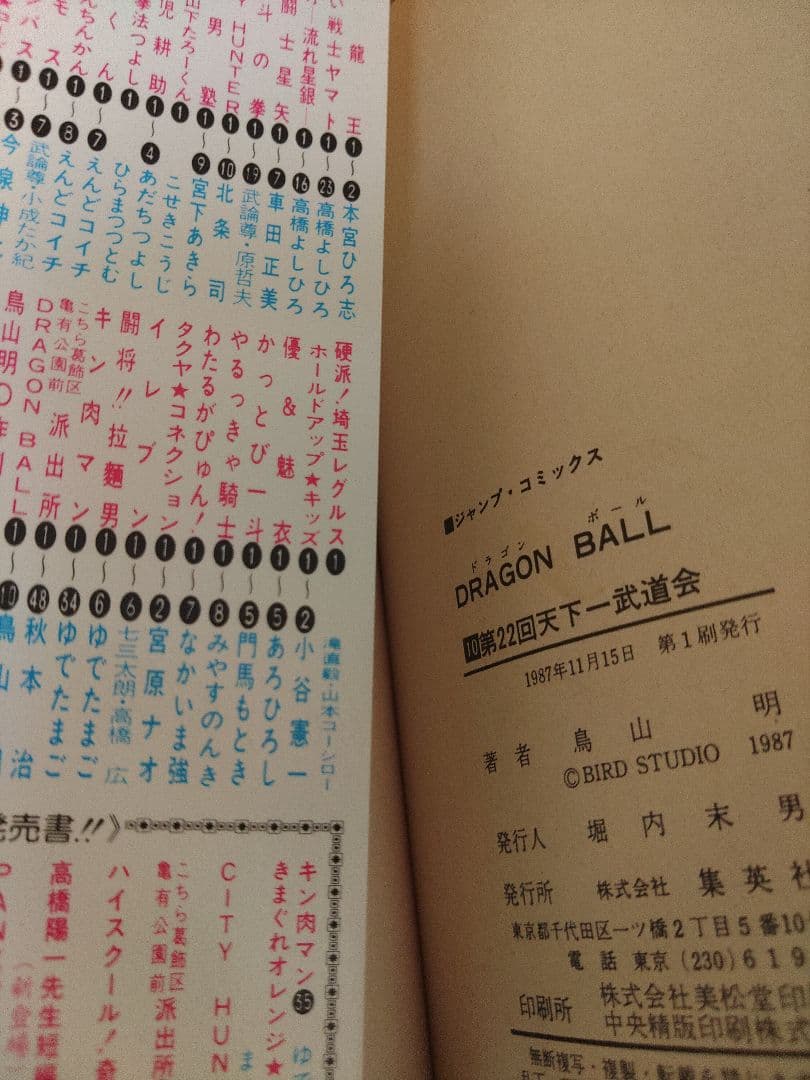 龍王❶〜❷本宮ひろ志
い戦士ヤマト❶〜㉓高橋よしひろ
―流れ星銀―❶〜⓰高橋よしひろ
闘士星矢❶〜❼車田正美
斗の拳❶〜⓳武論尊・原哲夫
HUNTER❶〜❿北条司
男塾❶〜❾宮下あきら
山下たろーくん❶こせきこうじ
児耕助❶〜❹あだちつよし
拳法つよし❶ひらまつつとむ
くん❶〜❼えんどコイチ
んちんかん❶〜❽えんどコイチ
モス❶〜❼武論尊・小成たか紀
パス❶〜❸今泉伸
硬派!埼玉レグルス❶滝直毅・山本コーシロー
ホールドアップ★キッズ❶〜❷小谷憲一
優&魅衣❶〜❺あろひろし
かっとび一斗❶〜❺門馬もとき
やるっきゃ騎士❶〜❽みやすのんき
わたるがぴゅん!❶〜❼なかいま強
タクヤ★コネクション❶〜❷宮原ナオ
イレブン❶〜❻七三太朗・高橋広
闘将!!拉麵男❶〜❻ゆでたまご
キン肉マン❶〜㉞ゆでたまご
こちら葛飾区亀有公園前派出所❶〜㊽秋本治
DRAGON BALL❶〜❿鳥山明
鳥山明○作
発売書!!》
キン肉マン㉟ゆで
きまぐれオレンジ★ま
CITY HUN
こちら葛飾区亀有公園前派出所
ハイスクール!奇
高橋陽一先生短編
(新登場
■ジャンプ・コミックス
ドラゴン ボール
DRAGON BALL
10第22回天下一武道会
1987年11月15日 第1刷発行
著者 鳥山明
©BIRD STUDIO 1987
発行人 堀内末男
発行所 株式会社 集英社
東京都千代田区一ツ橋2丁目5番10
電話 東京(230)619
印刷所 株式会社美松堂印
中央精版印刷株式
無断複写・複製・転載を